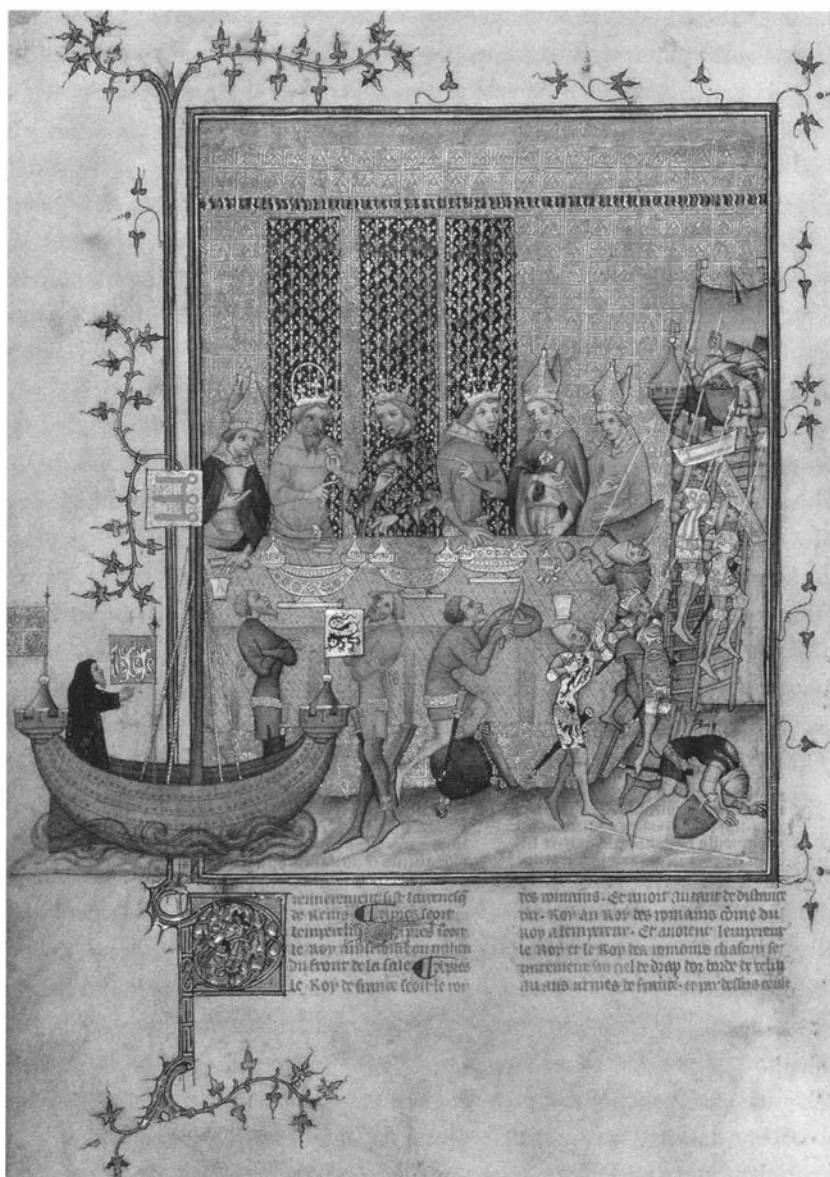 remierement sist larcevesq
de Reins Apres seoit
lempereur Apres seoit
le Roy ou milieu
du front de la sale Apres
le Roy de france seoit le roy
des romains. Et avoit autant de distance
du Roy au Roy des romains cõme du
Roy a lempereur. Et avoient lempereur
le Roy et le Roy des romains chascun se
parement un ciel de drap dor borde de veluy
au aus armes de france. et par dessus ceulx